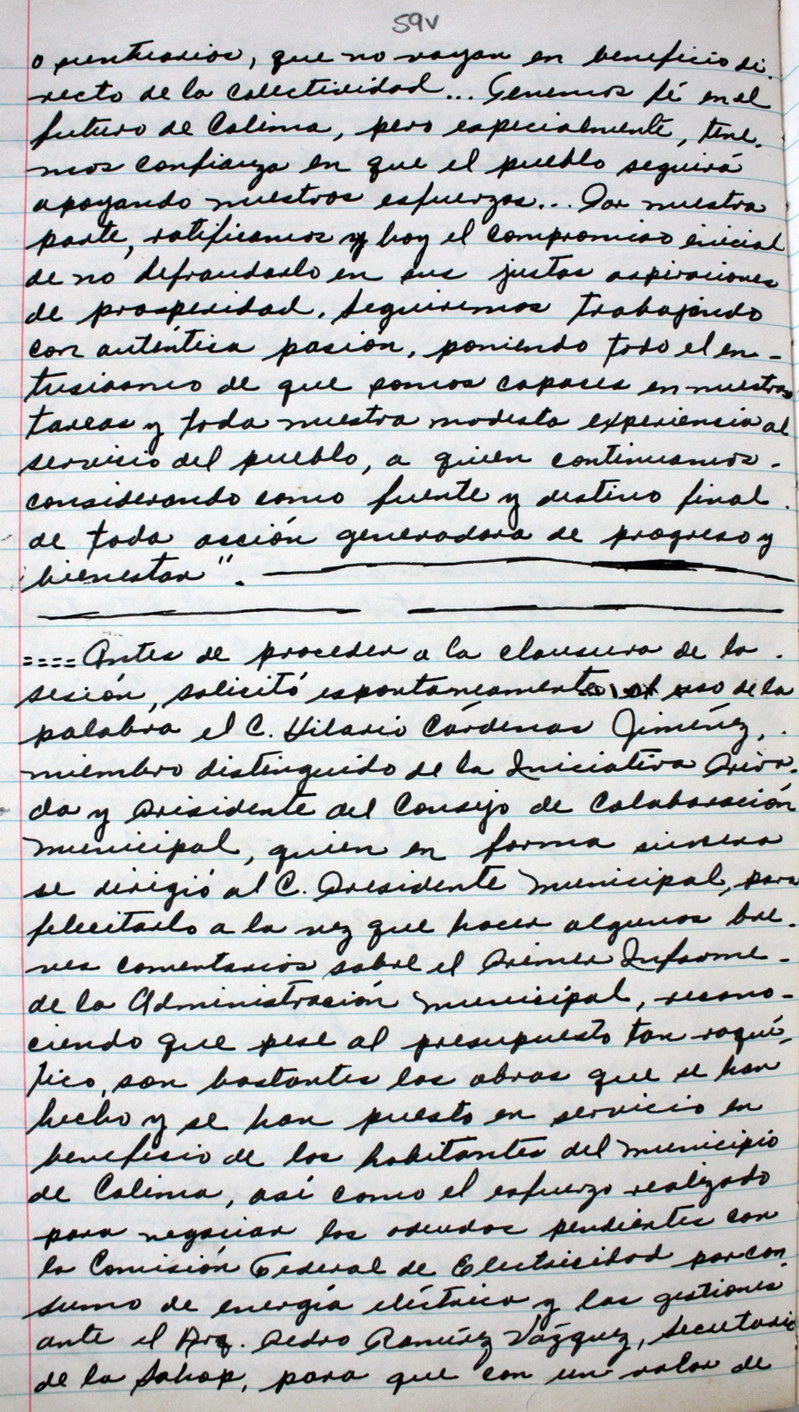 59v
o suntuarios, que no vayan en beneficio di-
recto de la colectividad... Tenemos fé en el
futuro de Colima, pero especialmente, tene-
mos confianza en que el pueblo seguirá
apoyando nuestros esfuerzos... Por nuestra
parte, ratificamos hoy el compromiso inicial
de no defraudarlo en sus justas aspiraciones
de prosperidad. Seguiremos trabajando
con auténtica pasión, poniendo todo el en-
tusiasmo de que somos capaces en nuestras
tareas y toda nuestra modesta experiencia al
servicio del pueblo, a quien continuamos
considerando como fuente y destino final
de toda acción generadora de progreso y
bienestar".
==== Antes de proceder a la clausura de la
sesión, solicitó espontaneamente el uso de la
palabra el C. Hilario Cárdenas Jiménez,
miembro distinguido de la Iniciativa Priva-
da y Presidente del Consejo de Colaboración
Municipal, quien en forma sincera
se dirigió al C. Presidente Municipal, para
felicitarlo a la vez que hacer algunos bre-
ves comentarios sobre el Primer Informe
de la Administración Municipal, recono-
ciendo que pese al presupuesto tan raquí-
tico, son bastantes las obras que se han
hecho y se han puesto en servicio en
beneficio de los habitantes del Municipio
de Colima, así como el esfuerzo realizado
para negociar los adeudos pendientes con
la Comisión Federal de Electricidad por con
sumo de energía eléctrica y las gestiones
ante el Arq. Pedro Ramírez Vázquez, Secretario
de la Sahop, para que con un valor de